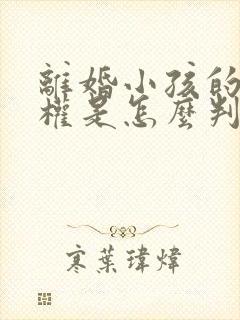 離婚小孩的
權是怎麼判
寒葉瑋煒